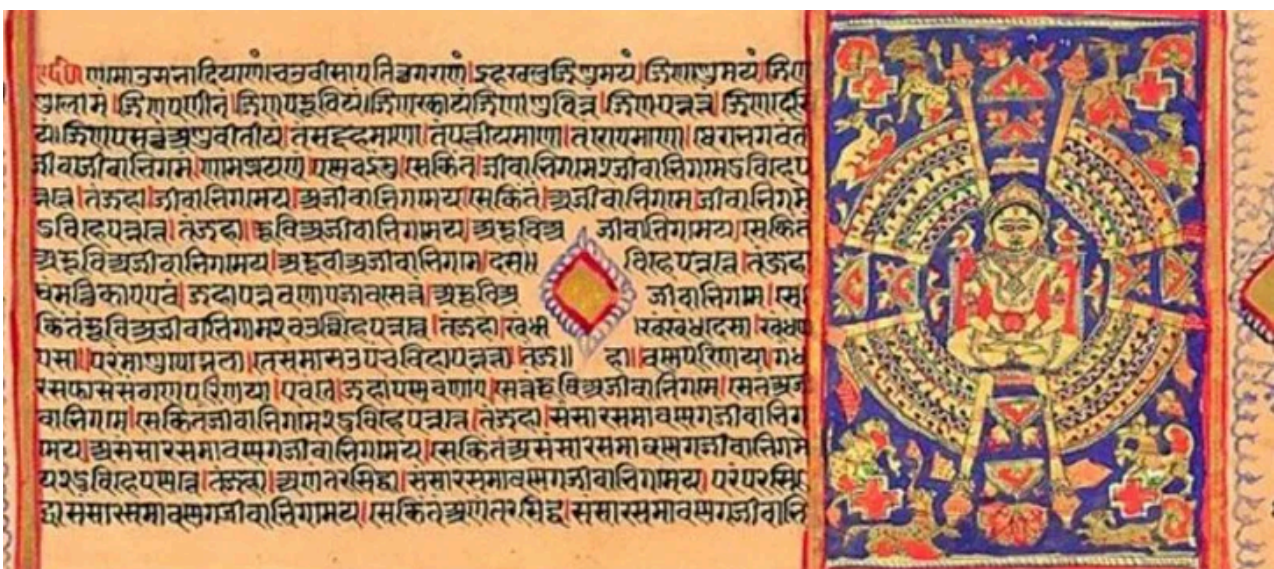 णमो उसभादियाणं चउवीसाए तित्थगराणं इह खलु जिणमयं जिणाणुमयं जिणा
णुलोमं जिणपणीतं जिणपरूवियं जिणक्खायं जिणाणुचिन्नं जिणपन्नत्तं जिणदेसि
यं जिणपसत्थं अणुवीतीय तं सद्दहमाणा तं पत्तीयमाणा तं रोएमाणा थेरा भगवंतो
जीवाजीवाभिगमं णामज्झयणं पन्नवइंसु से किं तं जीवाजीवाभिगमे २ दुविहे प
न्नत्ते तं जहा जीवाभिगमे य अजीवाभिगमे य से किं तं अजीवाभिगमे अजीवाभिगमे
दुविहे पन्नत्ते तं जहा रूविअजीवाभिगमे य अरूविअजीवाभिगमे य से किं तं
अरूविअजीवाभिगमे अरूविअजीवाभिगमे दस विहे पन्नत्ते तं जहा
धम्मत्थिकाए एवं जहा पन्नवणाए जाव से त्तं अरूविअजीवाभिगमे से
किं तं रूविअजीवाभिगमे २ चउव्विहे पन्नत्ते तं जहा खंधा खंधदेसा खंधप्प
एसा परमाणुपोग्गला ते समासओ पंचविहा पन्नत्ता तं जहा वण्णपरिणया गंध
रस फास संठाणपरिणया एवं ते जहा पण्णवणाए से त्तं रूविअजीवाभिगमे से त्तं अजी
वाभिगमे से किं तं जीवाभिगमे २ दुविहे पन्नत्ते तं जहा संसारसमावण्णगजीवाभिग
मे य असंसारसमावण्णगजीवाभिगमे य से किं तं असंसारसमावण्णगजीवाभिगमे
२ दुविहे पण्णत्ते तं जहा अणंतरसिद्धासंसारसमावण्णगजीवाभिगमे य परंपरसि
द्धासंसारसमावण्णगजीवाभिगमे य से किं तं अणंतरसिद्धासंसारसमावण्णगजीवाभि